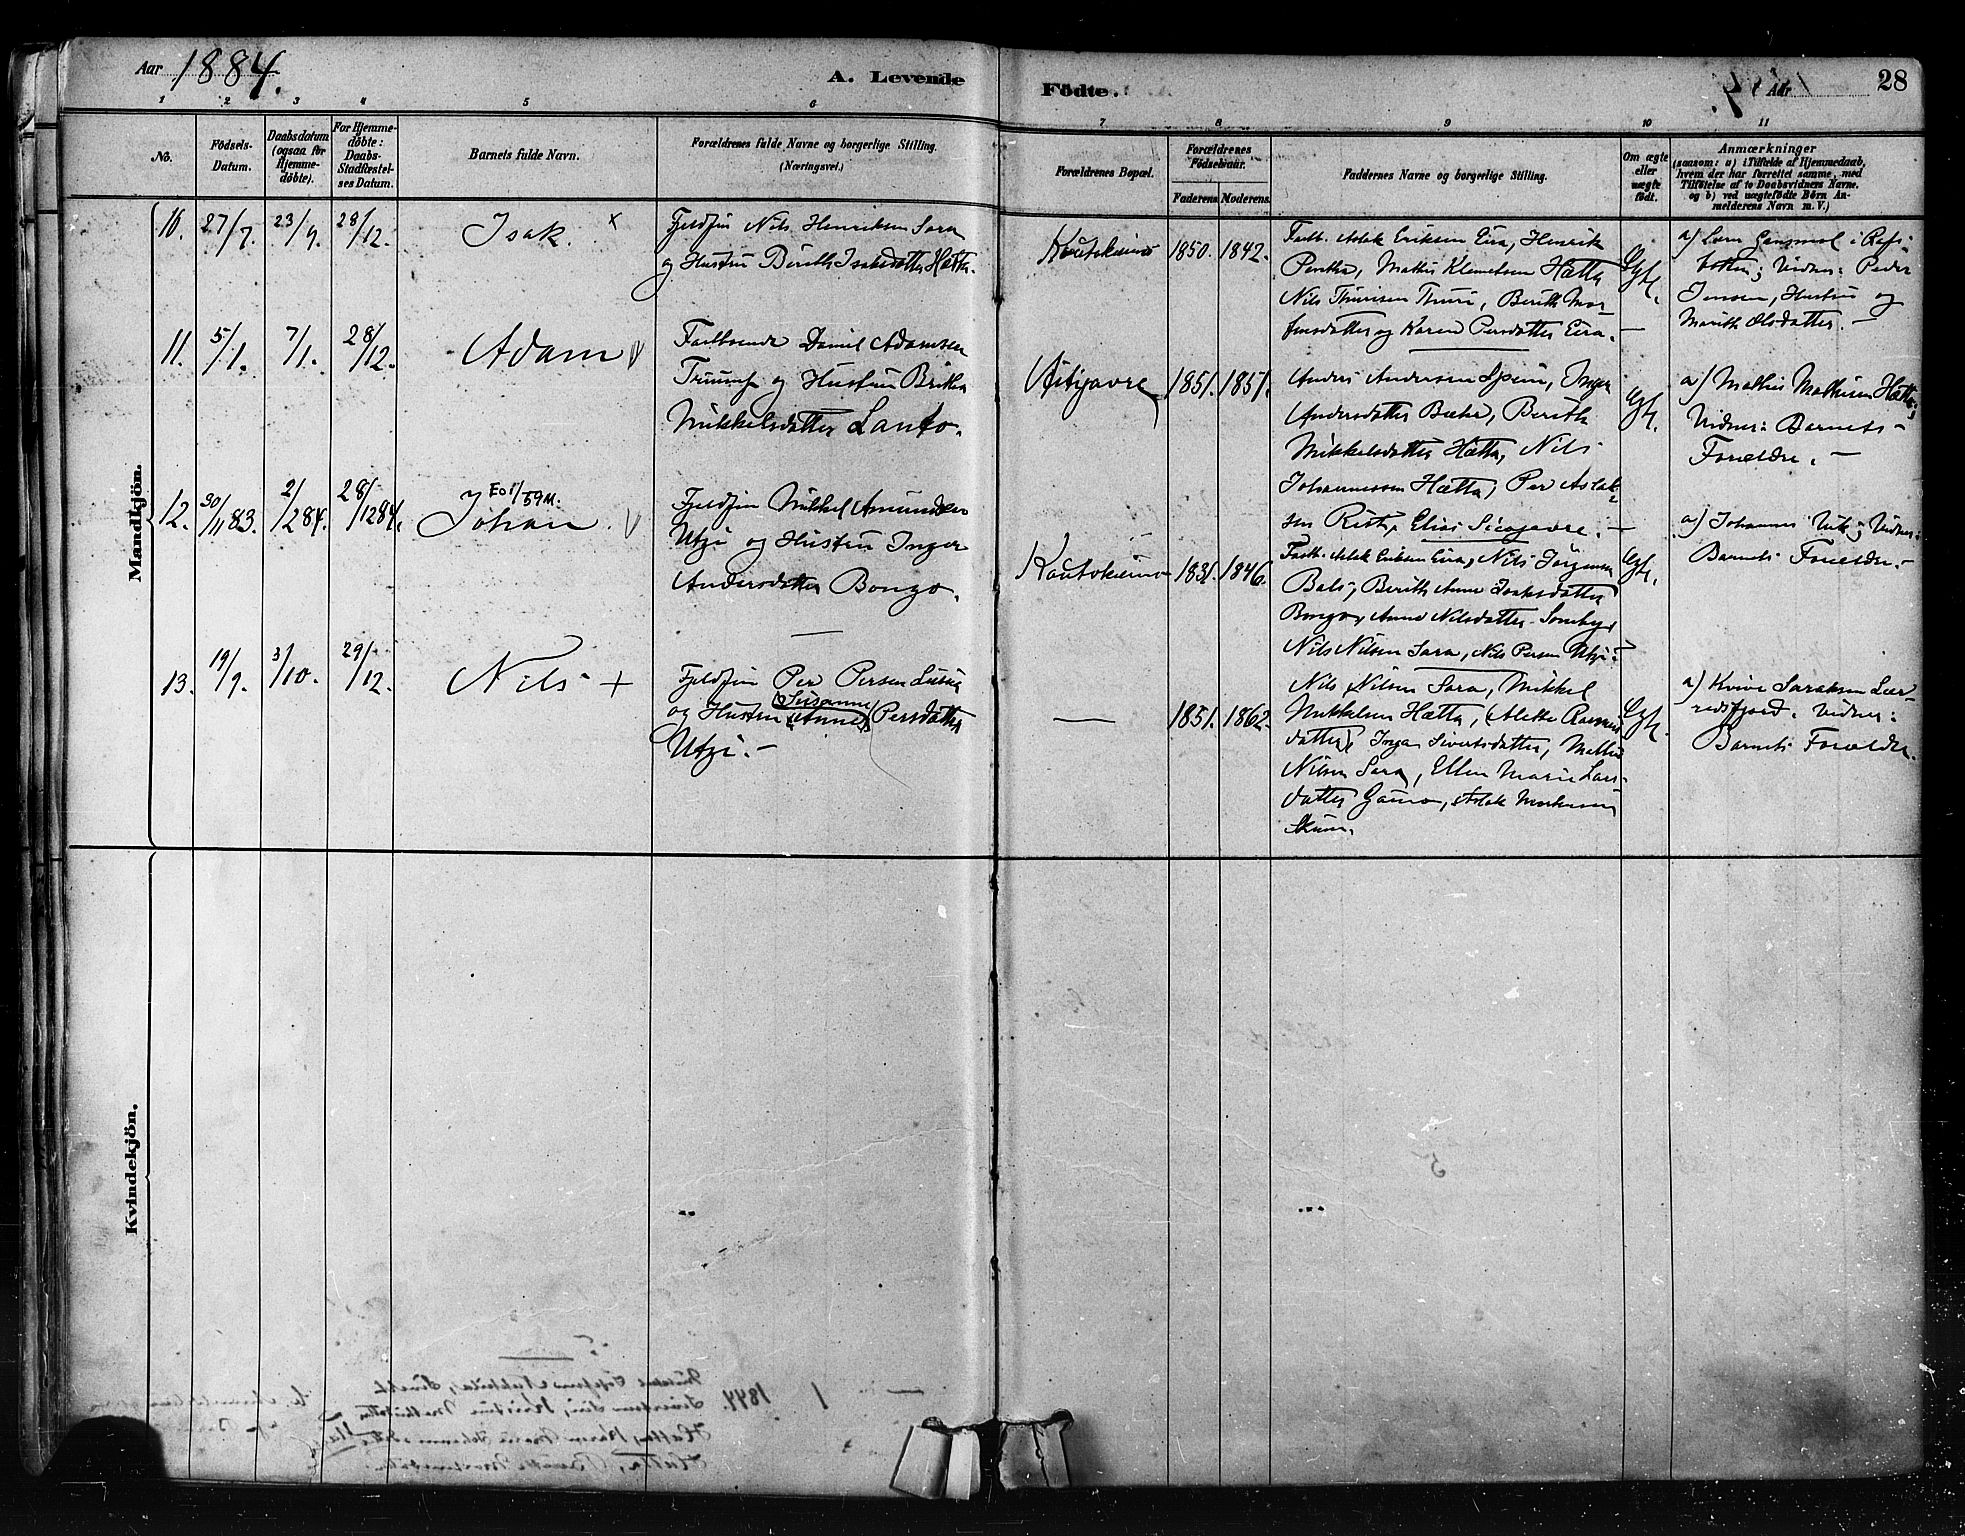 Aar 1884.
A. Levende
Födte.
Aar
28
1 2 3 4 5 6
7 8 9 10 11
No.
Födsels-
Datum.
Daabsdatum
(ogsaa for
Hjemme-
döbte).
For Hjemme-
döbte:
Daabs-
Stadfæstel-
ses Datum.
Barnets fulde Navn.
Forældrenes fulde Navne og borgerlige Stilling.
(Næringsvei.)
Forældrenes Bopæl.
Forældrenes
Födselsaar.
Faderens. Moderens.
Faddernes Navne og borgerlige Stilling.
Om ægte
eller
uægte
födt.
Anmærkninger
(saasom: a) i Tilfælde af Hjemmedaab,
hvem der har forrettet samme, med
Tilföielse af to Daabsvidners Navne.
og b) ved uægtefödte Börn An-
melderens Navn m. V.)
Mandkjön.
10. 27/7. 23/9. 28/12. Isak. x
Fjeldfin Nils Henriksen Sara
og Hustru Berith Isaksdatter Hætta.
Koutokeino 1850. 1842.
Fastb. Aslak Eriksen Eira, Henrik
Pentha, Mathis Klemetsen Hætta
Nils Thuresen Thuri, Berith Mor-
tensdatter og Karen Persdatter Eira.
Egte.
a) Lars Gausmel i Refs-
botten; Vidner: Peder
Jensen, Hustru og
Marith Olsdatter. —
11. 5/1. 7/1. 28/12. Adam
Fastboende Daniel Adamsen
Triumf og Hustru Brita
Mikkelsdatter Lanto.
1851. 1857.
Anders Andersen Spein, Inger
Andersdatter Bæhr, Berith
Mikkelsdatter Hætta, Nils
Johannessen Hætta, Per Aslak-
sen Rist, Elias Sicajavre. —
Egte.
a) Mathis Mathisen Hætta;
Vidner: Barnets
Forældre. —
12. 30/11 83. 2/2 84. 28/12 84. Johan.
Eo 1/59 M.
Fjeldfin Mikkel Amundsen
Utzi og Hustru Inger
Andersdatter Bongo.
Koutokeino 1831. 1846.
Fastb. Aslak Eriksen Eira, Nils Jörgensen
Bals, Berith Anne Isaksdatter
Bongo, Anne Nilsdatter Somby,
Nils Nilsen Sara, Nils Persen Utzi.
Egte.
a) Johannes Utzi; Vidner:
Barnets Forældre. —
13. 19/9. 3/10. 29/12. Nils +
Fjeldfin Per Persen
og Hustru (Anne) Persdatter
Susanne
Utzi. —
— 1851. 1862.
Nils Nilsen Sara, Mikkel
Mikkelsen Hætta, Alette Rasmus-
datter, Inga Sivertsdatter, Mathis
Nilsen Sara, Ellen Marie Lars-
datter Gaino, Aslak
Skum.
Egte.
a) Kvive Saraksen Lær-
redsfjord. Vidner:
Barnets Forældre.
Kvindekjön.